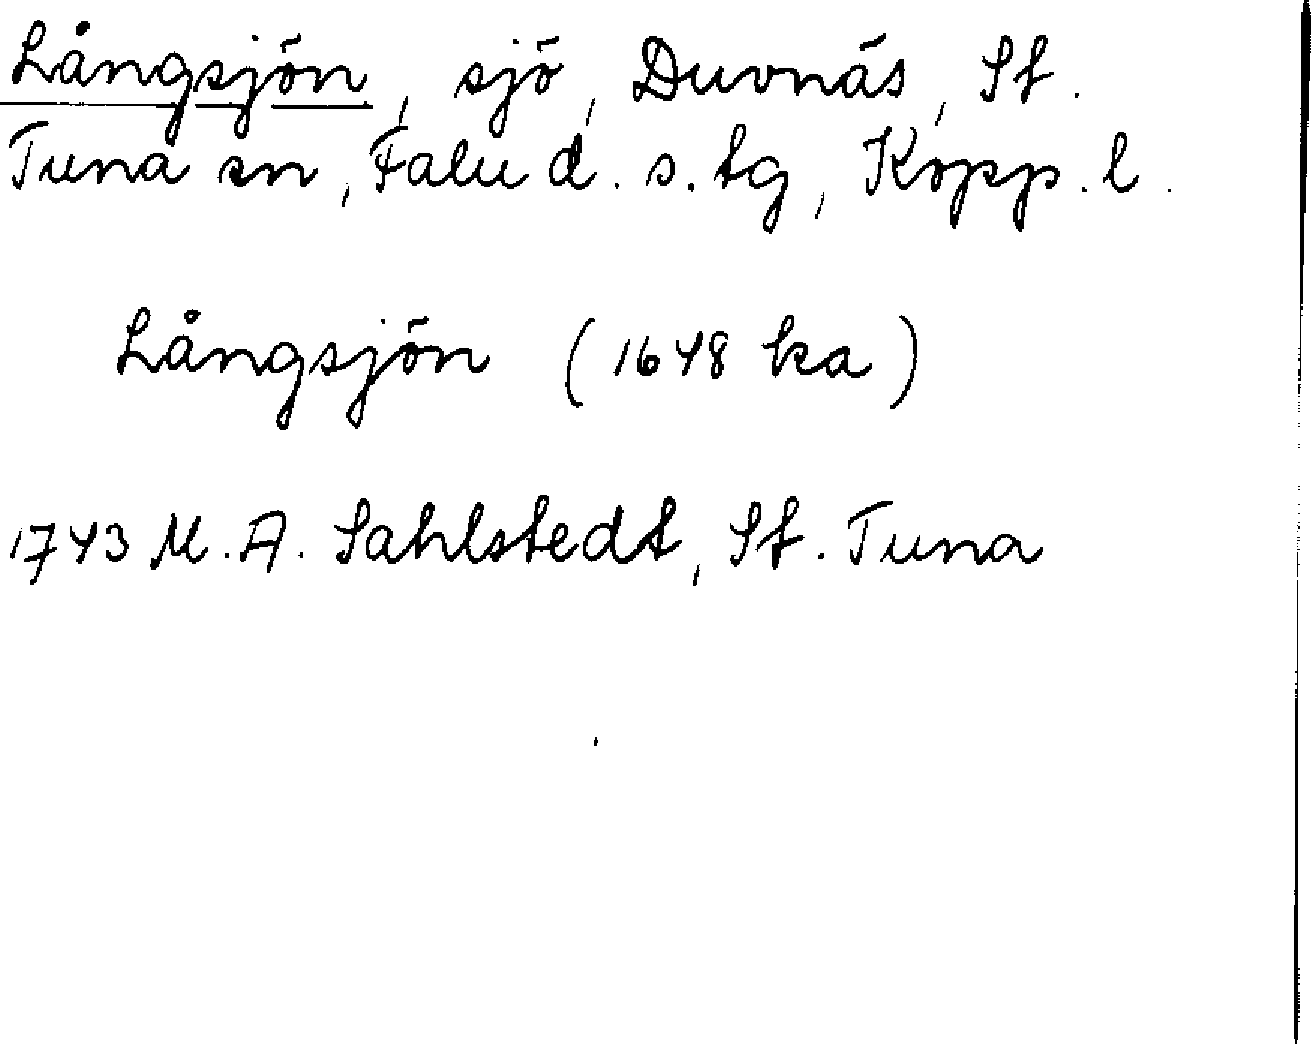 Långsjön, sjö, Duvnäs, St.
Tuna sn, Falu d. s. tg, Kopp. l.
Långsjön (1648 ka)
1743 M. A. Sahlstedt, St. Tuna